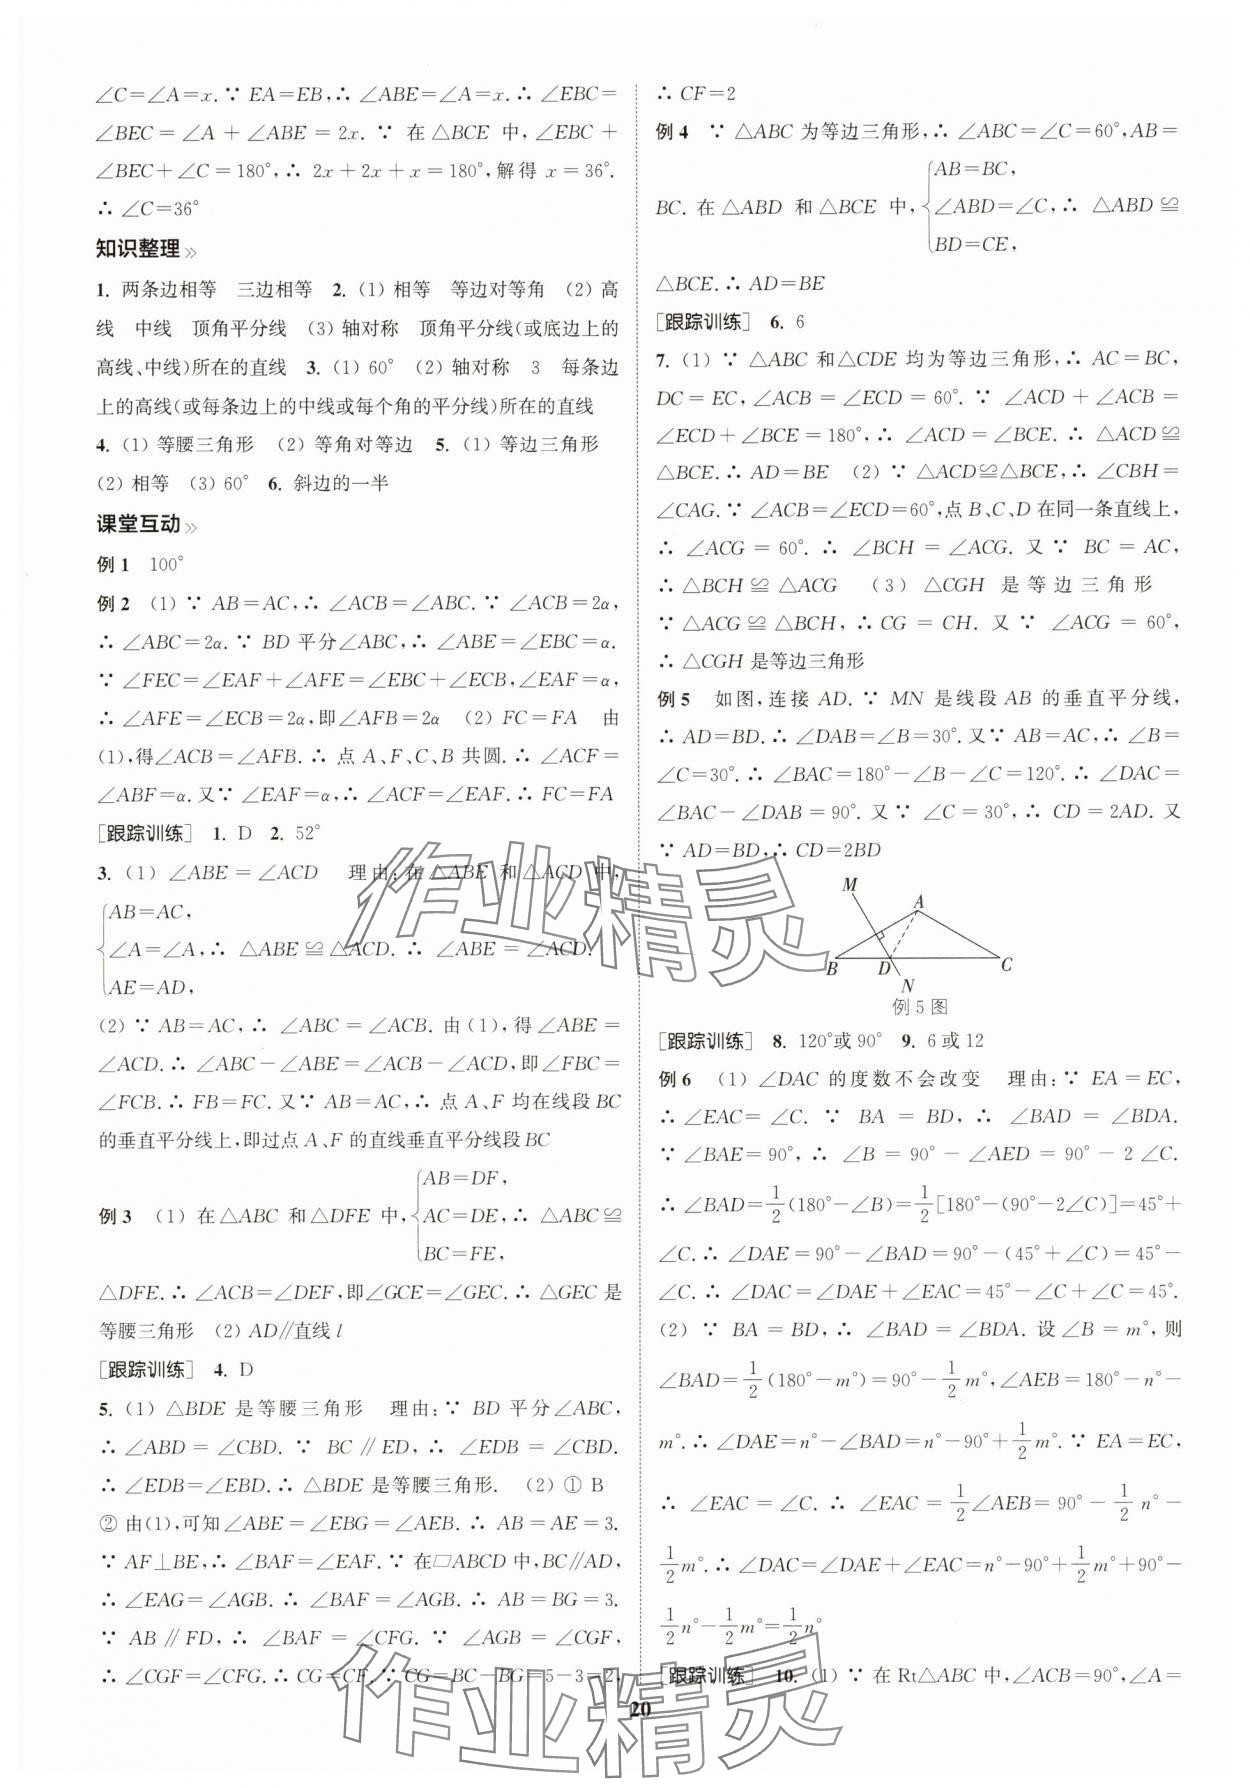 ∠C=∠A=x. ∵ EA=EB, ∴ ∠ABE=∠A=x. ∴ ∠EBC=
∠BEC=∠A+∠ABE=2x. ∵ 在△BCE 中,∠EBC+
∠BEC+∠C=180°, ∴ 2x+2x+x=180°,解得 x=36°.
∴ ∠C=36°
知识整理
1. 两条边相等 三边相等 2. (1) 相等 等边对等角 (2) 高
线 中线 顶角平分线 (3) 轴对称 顶角平分线(或底边上的
高线、中线)所在的直线 3. (1) 60° (2) 轴对称 3 每条边
上的高线(或每条边上的中线或每个角的平分线)所在的直线
4. (1) 等腰三角形 (2) 等角对等边 5. (1) 等边三角形
(2) 相等 (3) 60° 6. 斜边的一半
课堂互动
例 1 100°
例 2 (1) ∵ AB=AC, ∴ ∠ACB=∠ABC. ∵ ∠ACB=2α,
∴ ∠ABC=2α. ∵ BD 平分∠ABC, ∴ ∠ABE=∠EBC=α.
∵ ∠FEC=∠EAF+∠AFE=∠EBC+∠ECB,∠EAF=α,
∴ ∠AFE=∠ECB=2α,即∠AFB=2α (2) FC=FA 由
(1),得∠ACB=∠AFB. ∴ 点 A、F、C、B 共圆. ∴ ∠ACF=
∠ABF=α. 又∵ ∠EAF=α, ∴ ∠ACF=∠EAF. ∴ FC=FA
[跟踪训练] 1. D 2. 52°
3. (1) ∠ABE=∠ACD 理由:在△ABE 和△ACD 中,
AB=AC,
∠A=∠A, ∴ △ABE≌△ACD. ∴ ∠ABE=∠ACD.
AE=AD,
(2) ∵ AB=AC, ∴ ∠ABC=∠ACB. 由(1),得∠ABE=
∠ACD. ∴ ∠ABC-∠ABE=∠ACB-∠ACD,即∠FBC=
∠FCB. ∴ FB=FC. 又∵ AB=AC, ∴ 点 A、F 均在线段 BC
的垂直平分线上,即过点 A、F 的直线垂直平分线段 BC
AB=DF,
例 3 (1) 在△ABC 和△DFE 中, AC=DE, ∴ △ABC≌
BC=FE,
△DFE. ∴ ∠ACB=∠DEF,即∠GCE=∠GEC. ∴ △GEC 是
等腰三角形 (2) AD∥直线 l
[跟踪训练] 4. D
5. (1) △BDE 是等腰三角形 理由: ∵ BD 平分∠ABC,
∴ ∠ABD=∠CBD. ∵ BC∥ED, ∴ ∠EDB=∠CBD.
∴ ∠EDB=∠EBD. ∴ △BDE 是等腰三角形. (2) ① B
② 由(1),可知∠ABE=∠EBG=∠AEB. ∴ AB=AE=3.
∵ AF⊥BE, ∴ ∠BAF=∠EAF. ∵ 在▱ABCD 中,BC∥AD,
∴ ∠EAG=∠AGB. ∴ ∠BAF=∠AGB. ∴ AB=BG=3.
∵ AB∥FD, ∴ ∠BAF=∠CFG. ∵ ∠AGB=∠CGF,
∴ ∠CGF=∠CFG. ∴ CG=CF. ∵ CG=BC-BG=5-3=2,
∴ CF=2
例 4 ∵ △ABC 为等边三角形, ∴ ∠ABC=∠C=60°,AB=
AB=BC,
BC. 在△ABD 和△BCE 中, ∠ABD=∠C, ∴ △ABD≌
BD=CE,
△BCE. ∴ AD=BE
[跟踪训练] 6. 6
7. (1) ∵ △ABC 和△CDE 均为等边三角形, ∴ AC=BC,
DC=EC,∠ACB=∠ECD=60°. ∵ ∠ACD+∠ACB=
∠ECD+∠BCE=180°, ∴ ∠ACD=∠BCE. ∴ △ACD≌
△BCE. ∴ AD=BE (2) ∵ △ACD≌△BCE, ∴ ∠CBH=
∠CAG. ∵ ∠ACB=∠ECD=60°,点 B、C、D 在同一条直线上,
∴ ∠ACG=60°. ∴ ∠BCH=∠ACG. 又∵ BC=AC,
∴ △BCH≌△ACG (3) △CGH 是等边三角形
∵ △ACG≌△BCH, ∴ CG=CH. 又∵ ∠ACG=60°,
∴ △CGH 是等边三角形
例 5 如图,连接 AD. ∵ MN 是线段 AB 的垂直平分线,
∴ AD=BD. ∴ ∠DAB=∠B=30°. 又∵ AB=AC, ∴ ∠B=
∠C=30°. ∴ ∠BAC=180°-∠B-∠C=120°. ∴ ∠DAC=
∠BAC-∠DAB=90°. 又∵ ∠C=30°, ∴ CD=2AD. 又
∵ AD=BD, ∴ CD=2BD
M
A
B D C
N
例 5 图
[跟踪训练] 8. 120°或 90° 9. 6 或 12
例 6 (1) ∠DAC 的度数不会改变 理由: ∵ EA=EC,
∴ ∠EAC=∠C. ∵ BA=BD, ∴ ∠BAD=∠BDA.
∵ ∠BAE=90°, ∴ ∠B=90°-∠AED=90°-2∠C.
∴ ∠BAD=1/2(180°-∠B)=1/2[180°-(90°-2∠C)]=45°+
∠C. ∴ ∠DAE=90°-∠BAD=90°-(45°+∠C)=45°-
∠C. ∴ ∠DAC=∠DAE+∠EAC=45°-∠C+∠C=45°.
(2) ∵ BA=BD, ∴ ∠BAD=∠BDA. 设∠B=m°,则
∠BAD=1/2(180°-m°)=90°-1/2m°,∠AEB=180°-n°-
m°. ∴ ∠DAE=n°-∠BAD=n°-90°+1/2m°. ∵ EA=EC,
∴ ∠EAC=∠C. ∴ ∠EAC=1/2∠AEB=90°-1/2n°-
1/2m°. ∴ ∠DAC=∠DAE+∠EAC=n°-90°+1/2m°+90°-
1/2n°-1/2m°=1/2n°
[跟踪训练] 10. (1) ∵ 在 Rt△ABC 中,∠ACB=90°,∠A=
20
作业精灵
作业精灵